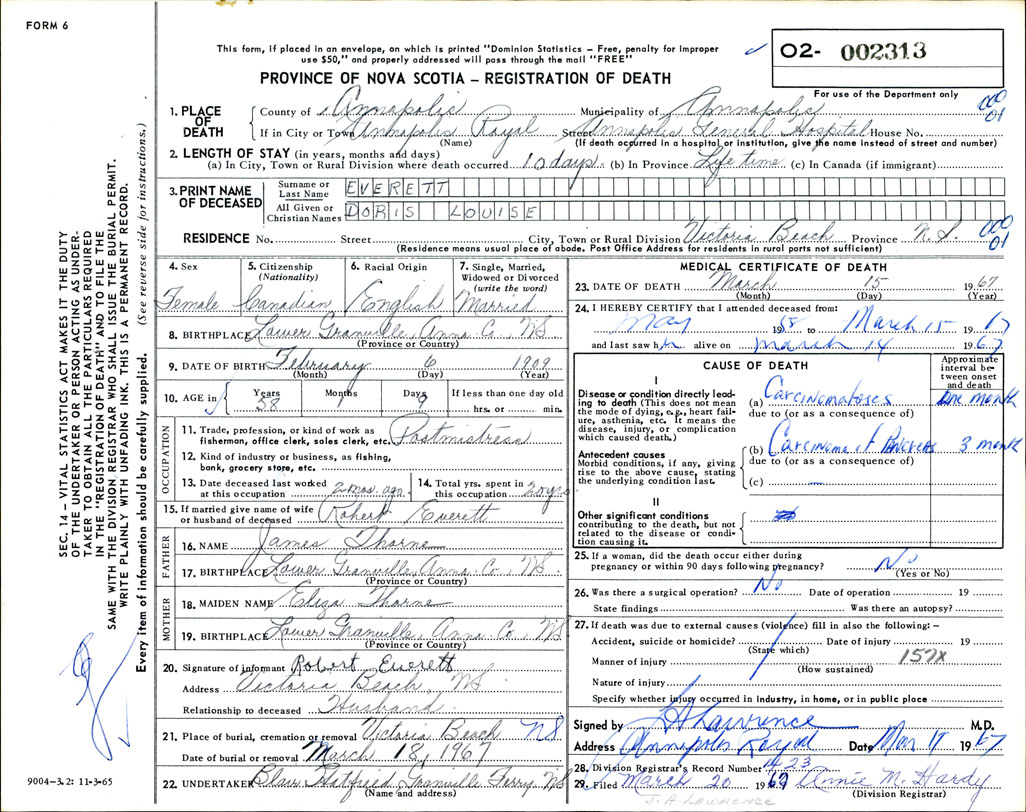 FORM 6
This form, if placed in an envelope, on which is printed "Dominion Statistics – Free, penalty for improper
use $50," and properly addressed will pass through the mail "FREE"
O2- 002313
PROVINCE OF NOVA SCOTIA – REGISTRATION OF DEATH
For use of the Department only
1. PLACE OF DEATH
County of Annapolis Municipality of Annapolis
If in City or Town Annapolis Royal Street Annapolis General Hospital House No.
(Name) (If death occurred in a hospital or institution, give the name instead of street and number)
000
01
2. LENGTH OF STAY (in years, months and days)
(a) In City, Town or Rural Division where death occurred 10 days. (b) In Province Life time (c) In Canada (if immigrant)
3. PRINT NAME OF DECEASED
Surname or Last Name EVERETT
All Given or Christian Names DORIS LOUISE
RESIDENCE No. Street City, Town or Rural Division Victoria Beach Province N.S.
(Residence means usual place of abode. Post Office Address for residents in rural parts not sufficient)
000
01
4. Sex 5. Citizenship (Nationality) 6. Racial Origin 7. Single, Married, Widowed or Divorced (write the word)
Female Canadian English Married
8. BIRTHPLACE Lower Granville, Anna. Co., NS
(Province or Country)
9. DATE OF BIRTH February 6 1909
(Month) (Day) (Year)
10. AGE in Years Months Days If less than one day old
58 1 9 hrs. or min.
OCCUPATION
11. Trade, profession, or kind of work as
fisherman, office clerk, sales clerk, etc. Postmistress
12. Kind of industry or business, as fishing,
bank, grocery store, etc.
13. Date deceased last worked
at this occupation 2 mos. ago
14. Total yrs. spent in
this occupation 20 yrs
15. If married give name of wife
or husband of deceased Robert Everett
FATHER
16. NAME James Thorne
17. BIRTHPLACE Lower Granville, Anna. Co., NS.
(Province or Country)
MOTHER
18. MAIDEN NAME Eliza Thorne
19. BIRTHPLACE Lower Granville, Anna. Co., NS
(Province or Country)
20. Signature of informant Robert Everett
Address Victoria Beach, NS
Relationship to deceased Husband
21. Place of burial, cremation or removal Victoria Beach NS
Date of burial or removal March 18, 1967
22. UNDERTAKER Blair Hatfield, Granville Ferry, NS
(Name and address)
MEDICAL CERTIFICATE OF DEATH
23. DATE OF DEATH March 15 1967
(Month) (Day) (Year)
24. I HEREBY CERTIFY that I attended deceased from:
May to March 15 19
and last saw her alive on March 14 1967
CAUSE OF DEATH
Approximate interval between onset and death
I
Disease or condition directly leading to death (This does not mean
the mode of dying, e.g., heart failure, asthenia, etc. It means the
disease, injury, or complication
which caused death.)
(a) Carcinomatoses one month
due to (or as a consequence of)
Antecedent causes
Morbid conditions, if any, giving
rise to the above cause, stating
the underlying condition last.
(b) Carcinoma of Pancreas 3 month
due to (or as a consequence of)
(c) —
II
Other significant conditions
contributing to the death, but not
related to the disease or condition causing it.
25. If a woman, did the death occur either during
pregnancy or within 90 days following pregnancy? No
(Yes or No)
26. Was there a surgical operation? No Date of operation 19
State findings Was there an autopsy?
27. If death was due to external causes (violence) fill in also the following: –
Accident, suicide or homicide? Date of injury 19
(State which)
Manner of injury 157X
(How sustained)
Nature of injury
Specify whether injury occurred in industry, in home, or in public place
Signed by J A Lawrence M.D.
Address Annapolis Royal Date Mar 17 1967
28. Division Registrar's Record Number 1423
29. Filed March 20 1967 Annie M. Hardy
(Division Registrar)
J. A. LAWRENCE
SEC. 14 – VITAL STATISTICS ACT MAKES IT THE DUTY
OF THE UNDERTAKER OR PERSON ACTING AS UNDER-
TAKER TO OBTAIN ALL THE PARTICULARS REQUIRED
IN THE "REGISTRATION OF DEATH" AND TO FILE THE
SAME WITH THE DIVISION REGISTRAR WHO SHALL ISSUE THE BURIAL PERMIT.
WRITE PLAINLY WITH UNFADING INK. THIS IS A PERMANENT RECORD.
Every item of information should be carefully supplied. (See reverse side for instructions.)
9004–3.2: 11-3-65